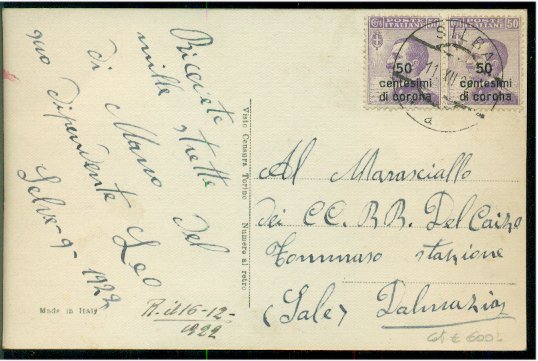 Ricevete
mille strette
di Mano del
suo dipendente Leo
Selve - 9 - 1922
R. il 16-12-
1922
Made in Italy
Visto Censura Torino Numero al retro
POSTE ITALIANE 50
50
centesimi
di corona
POSTE ITALIANE 50
50
centesimi
di corona
SELVA
11 XII
a
Al Marasciallo
dei CC. RR. Del Caizo
Tommaso stazione
(Sale) Dalmazia
€ 600